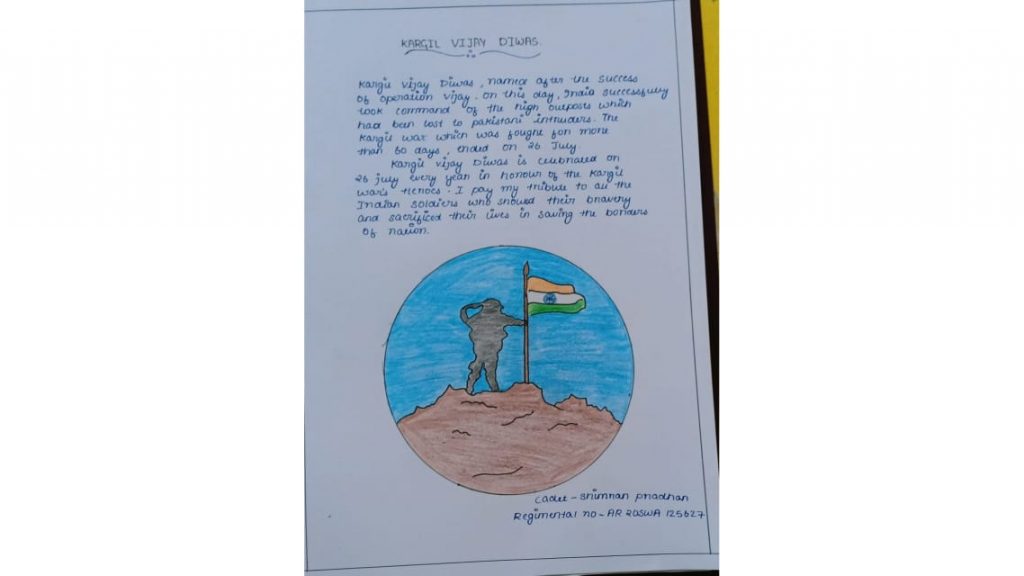 KARGIL VIJAY DIWAS.
Kargil Vijay Diwas, named after the success
of operation vijay. on this day, India successfully
took command of the high outposts which
had been lost to pakistani intruders. The
Kargil war which was fought for more
than 60 days, ended on 26 July.
Kargil vijay Diwas is celebrated on
26 july every year in honour of the Kargil
war's Heroes. I pay my tribute to all the
Indian soldiers who showed their bravery
and sacrificed their lives in saving the borders
of nation.
Cadet - Shimran pradhan
Regimental no - AR 20SWA 125627